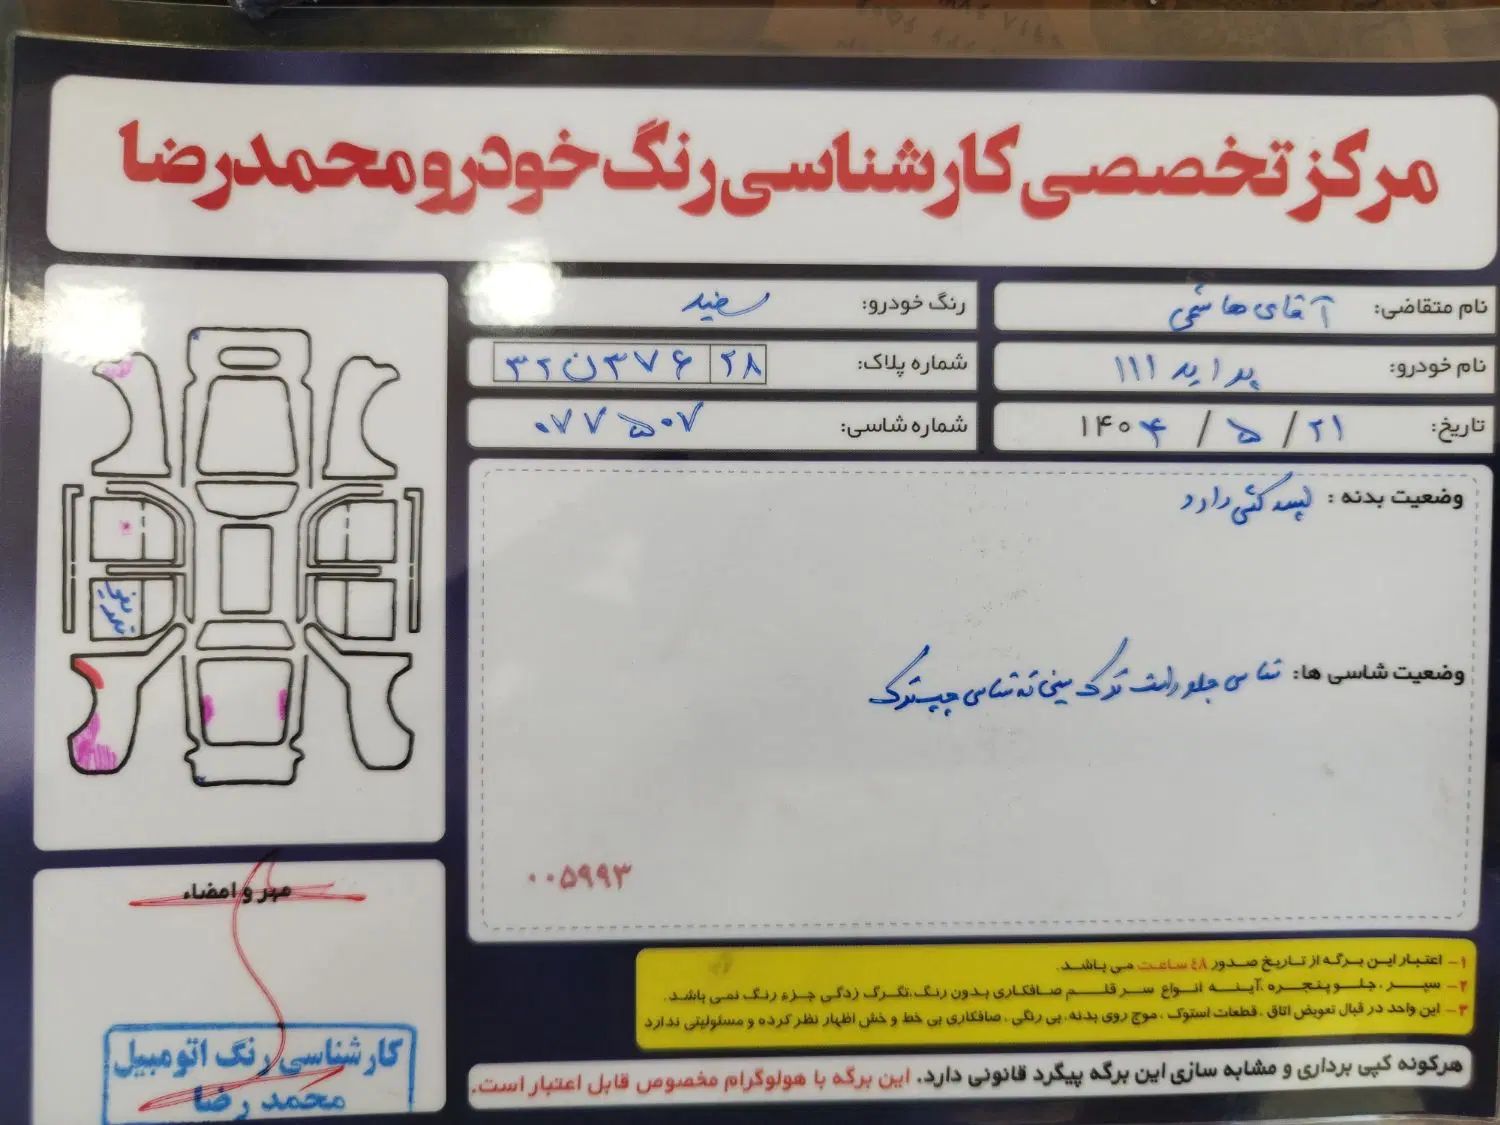 مرکز تخصصی کارشناسی رنگ خودرو محمدرضا
نام متقاضی: آقای هاشمی
رنگ خودرو: سفید
نام خودرو: پراید ۱۱۱
شماره پلاک: ۳۲ن۳۷۶ ۲۸
تاریخ: ۱۴۰۴ / ۵ / ۲۱
شماره شاسی: ۰۷۷۵۰۷
وضعیت بدنه : لیسه کشی دارد
وضعیت شاسی ها: شاسی جلو راست ترک سینی ته شاسی چپ ترک
تعویض
۰۰۵۹۹۳
مهر و امضاء
کارشناسی رنگ اتومبیل
محمد رضا
۱- اعتبار این برگه از تاریخ صدور ۴۸ ساعت می باشد.
۲- سپر ، جلو پنجره ،آینه انواع سر قلم صافکاری بدون رنگ،تگرگ زدگی جزء رنگ نمی باشد.
۳- این واحد در قبال تعویض اتاق ، قطعات استوک ، موج روی بدنه، بی رنگی ، صافکاری بی خط و خش اظهار نظر کرده و مسئولیتی ندارد
هرگونه کپی برداری و مشابه سازی این برگه پیگرد قانونی دارد. این برگه با هولوگرام مخصوص قابل اعتبار است.